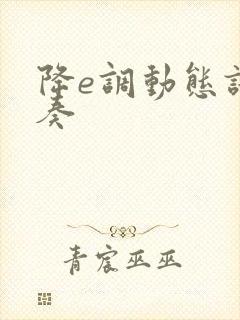 降e調動態
奏
青宸巫巫